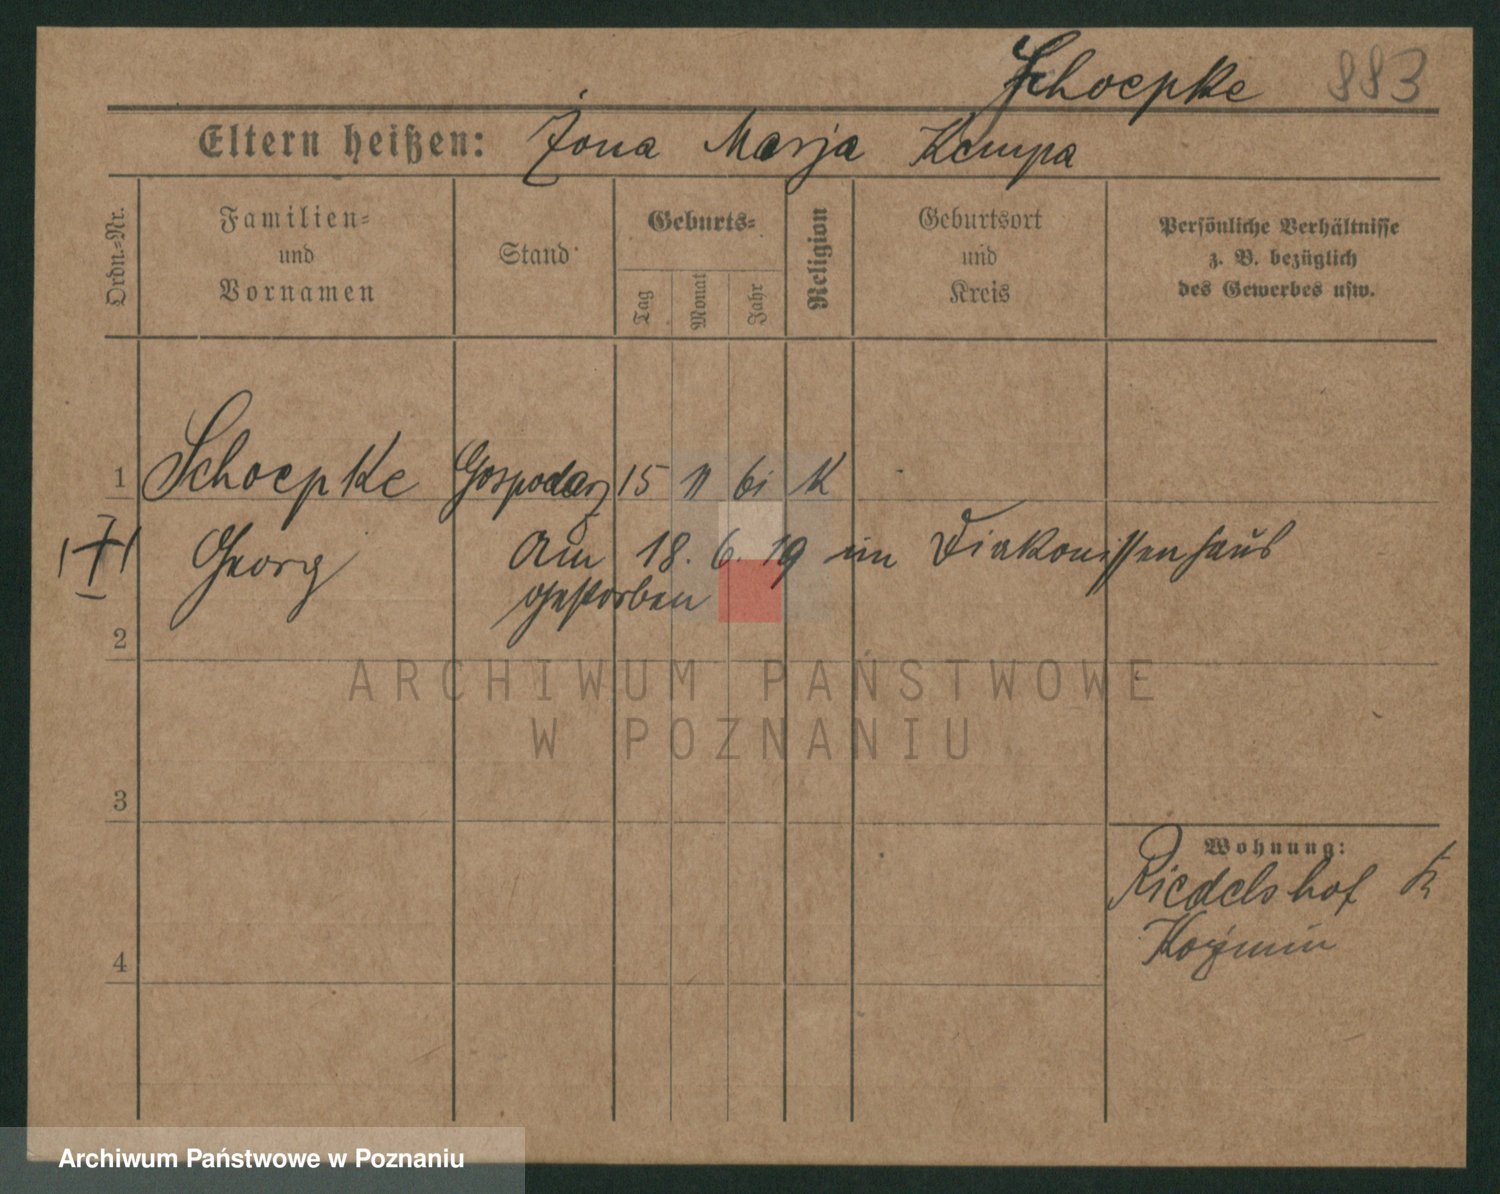 Schoepke 883
Eltern heißen: Żona Marja Kempa
Ordn.-Nr.
Familien-
und
Vornamen
Stand
Geburts-
Tag
Monat
Jahr
Religion
Geburtsort
und
Kreis
Persönliche Verhältnisse
z. B. bezüglich
des Gewerbes usw.
1 Schoepke Gospodarz 15 11 61 K
Georg Am 18. 6. 19 im Diakonissenhaus
gestorben
2
ARCHIWUM PAŃSTWOWE
W POZNANIU
3
Wohnung:
Riedelshof
4
Archiwum Państwowe w Poznaniu